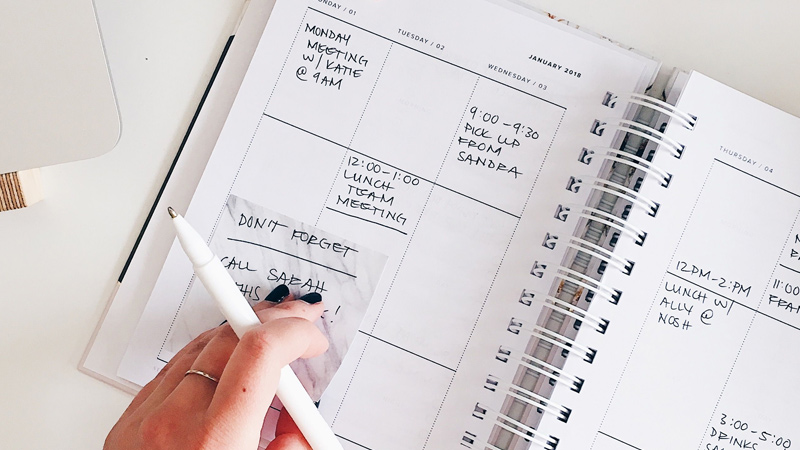 JANUARY 2018
/ 01
MONDAY
MEETING
W/ KATIE
@ 9AM
TUESDAY / 02
12:00-1:00
LUNCH
TEAM
MEETING
WEDNESDAY / 03
9:00-9:30
PICK UP
FROM
SANDRA
DON'T FORGET
CALL SARAH
THIS
THURSDAY / 04
12PM-2PM
LUNCH W/
ALLY @
NOSH
3:00-5:00
DRINKS
11:00